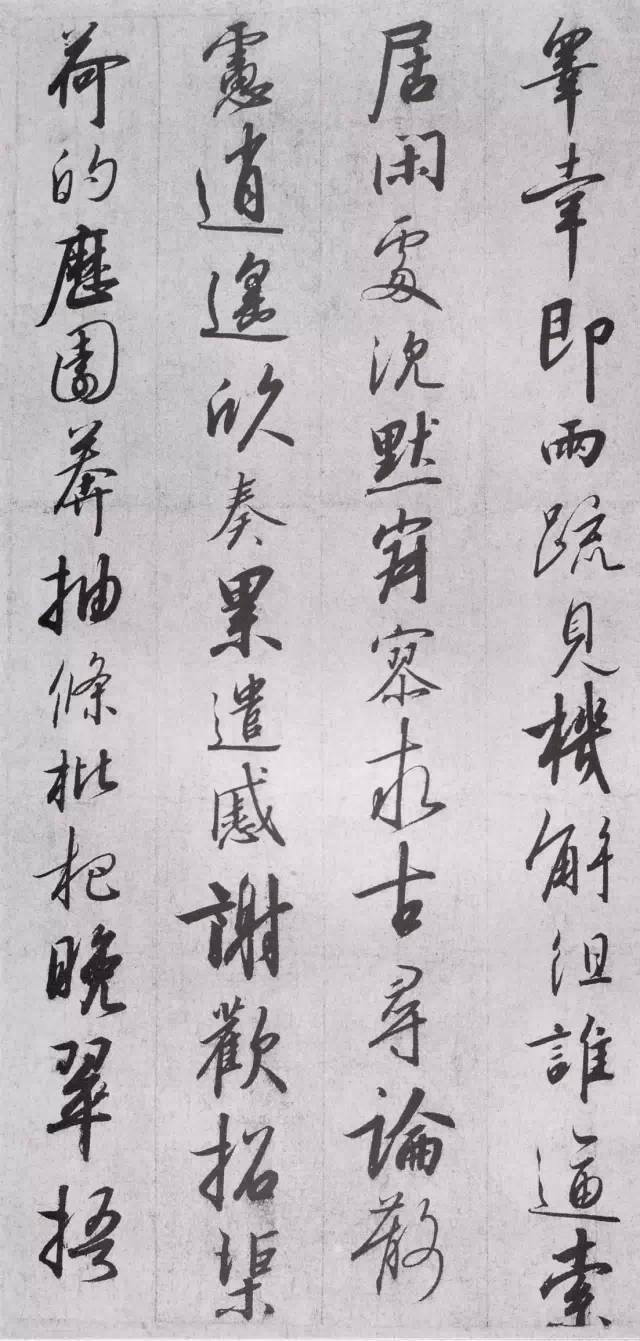 皋幸即兩疏見機解徂誰逼索
居閑處沉默寂寥求古尋論散
慮逍遙欣奏累遣慼謝歡招渠
荷的歷園莽抽條枇杷晚翠梧